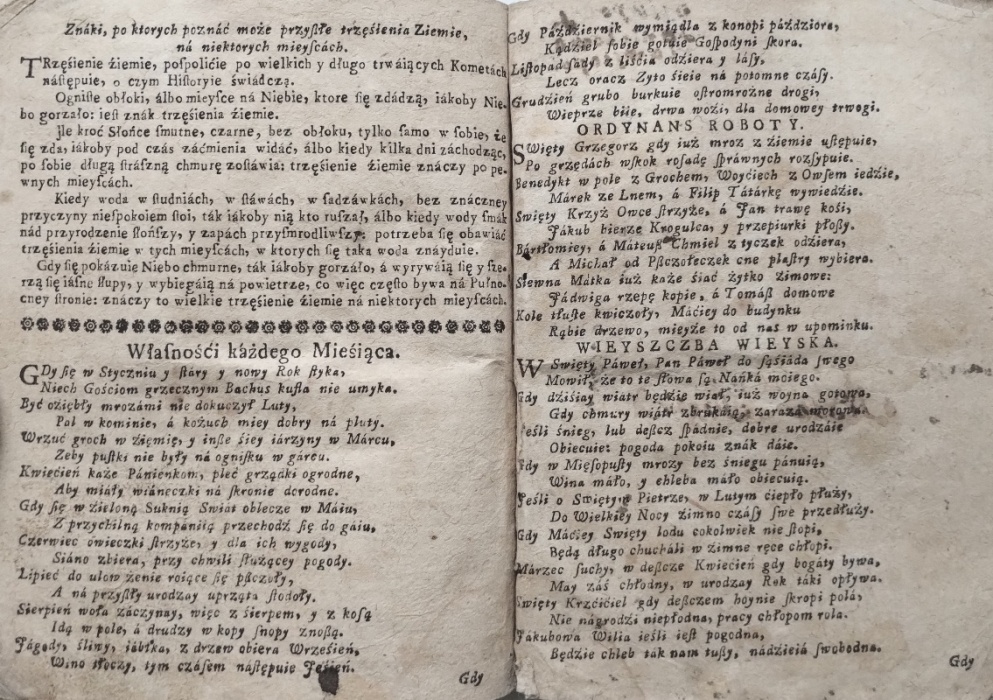 Znáki, po ktorych poznáć może przyſzłe trzęśienia Ziemie,
ná niektorych mieyſcách.
TRzęśienie źiemie, poſpolićie po wielkich y długo trwáiących Kometách
náſtępuie, o czym Hiſtoryie świádczą.
Ogniſte obłoki, álbo mieyſce ná Niebie, ktore ſię zdádzą, iákoby Nie-
bo gorzało: ieſt znák trzęśienia źiemie.
Jle kroć Słońce ſmutne, czarne, bez obłoku, tylko ſamo w ſobie, że
ſię zda, iákoby pod czás záćmienia widáć, álbo kiedy kilka dni záchodząc,
po ſobie długą ſtráſzną chmurę zoſtáwia: trzęśienie źiemie znáczy po pe-
wnych mieyſcách.
Kiedy woda w ſtudniách, w ſtáwách, w ſadzáwkách, bez znáczney
przyczyny nieſpokoiem ſtoi, ták iákoby nią kto ruſzał, álbo kiedy wody ſmák
nád przyrodzenie ſłońſzy, y zapách przyſmrodliwſzy: potrzeba ſię obawiáć
trzęśienia źiemie w tych mieyſcách, w ktorych ſię taka woda znáyduie.
Gdy ſię pokázuie Niebo chmurne, ták iákoby gorzáło, á wyrywáią ſię y ſze-
rzą ſię iáſne ſłupy, y wybiegáią ná powietrze, co więc częſto bywa ná Pułno-
cney ſtronie: znáczy to wielkie trzęśienie źiemie ná niektorych mieyſcách.
Właſnośći káżdego Mieśiąca.
GDy ſię w Styczniu y ſtáry y nowy Rok ſtyka,
Niech Gośćiom grzecznym Bachus kufla nie umyka.
Być oźiębły mrozámi nie dokuczył Luty,
Pal w kominie, á kożuch miey dobry ná pluty.
Wrzuć groch w źięmię, y inſze śiey iárzyny w Márcu,
Zeby puſtki nie były ná ogniſku w gárcu.
Kwiećień każe Pánienkom, pleć grządki ogrodne,
Aby miáły wiáneczki ná ſkronie dorodne.
Gdy ſię w źieloną Suknią Swiát oblecze w Máiu,
Z przychilną kompániią przechodź ſię do gáiu,
Czerwiec owieczki ſtrzyże, y dla ich wygody,
Siáno zbiera, przy chwili ſłużącey pogody.
Lipiec do ulow żenie roiące ſię pſzczoły,
A ná przyſzły urodzay uprząta ſtodoły.
Sierpień woła záczynay, więc z śierpem, y z koſą
Idą w pole, á drudzy w kopy ſnopy znoſzą.
Jágody, śliny, iábłka, z drzew obiera Wrześień,
Wino tłoczy, tym czáſem náſtępuie Jeśień.
Gdy
Gdy Páździernik wymiądla z konopi páździora,
Kądźiel ſobie gotuie Goſpodyni ſkora.
Liſtopad ſády z liśćia odźiera y láſy,
Lecz oracz Zyto śieie ná potomne czáſy.
Grudźień grubo burkuie oſtromroźne drogi,
Wieprze biie, drwa woźi, dla domowey trwogi.
ORDYNANS ROBOTY.
SWięty Grzegorz gdy iuż mroz z źiemie uſtępuie,
Po grzędách wſkok roſadę ſpráwnych rozſypuie.
Benedykt w pole z Grochem, Woyćiech z Owſem iedźie,
Márek ze Lnem, á Filip Tátárkę wywiedźie.
Swięty Krzyż Owce ſtrzyże, á Jan trawę kośi,
Jákub bierze Krogulca, y przepiurki płoſzy.
Bártłomiey, á Máteuſz Chmiel z tyczek odźiera,
A Michał od Pſzczołeczek cne plaſtry wybiera.
Sławna Mátka iuż każe śiáć żytko źimowe:
Jádwiga rzepę kopie, á Tomáſz domowe
Kole tłuſte kwiczoły, Máćiey do budynku
Rąbie drzewo, mieyże to od nas w upominku.
WIEYSZCZBA WIEYSKA.
W Swięty Páweł, Pan Páweł do ſąśiáda ſwego
Mowił, że to te ſłowa ſą Nańká moiego.
Gdy dźiśiay wiatr będźie wiał, iuż woyna gotowa,
Gdy chmury wiátr zbrukáią, zaraza morowa.
Jeśli śnieg, lub deſzcz ſpádnie, dobre urodzáie
Obiecuie: pogoda pokoiu znák dáie.
Gdy w Mięſopuſty mrozy bez śniegu pánuią,
Wina máło, y chleba máło obiecuią.
Jeśli o Swiętym Pietrze, w Lutym ćiepło płuży,
Do Wielkiey Nocy źimno czáſy ſwe przedłuży.
Gdy Máćiey Swięty lodu cokolwiek nie ſtopi,
Będą długo chucháli w źimne ręce chłopi.
Márzec ſuchy, w deſzcze Kwiećień gdy bogáty bywa,
May záś chłodny, w urodzay Rok táki opływa.
Swięty Krzćićiel gdy deſzczem hoynie ſkropi polá,
Nie nágrodźi niepłodna, pracy chłopom rola.
Jákubowa Wilia ieśli ieſt pogodna,
Będźie chleb ták nam tuſzy, nádźieiá ſwobodna.
Gdy